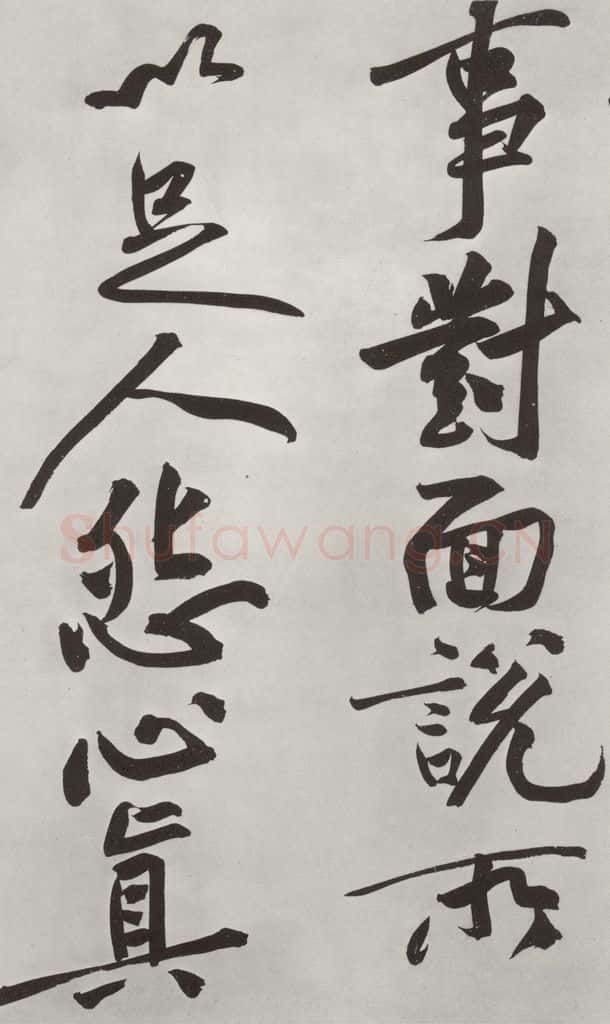 事對面說所
以足人悲心真
Shufawang.CN